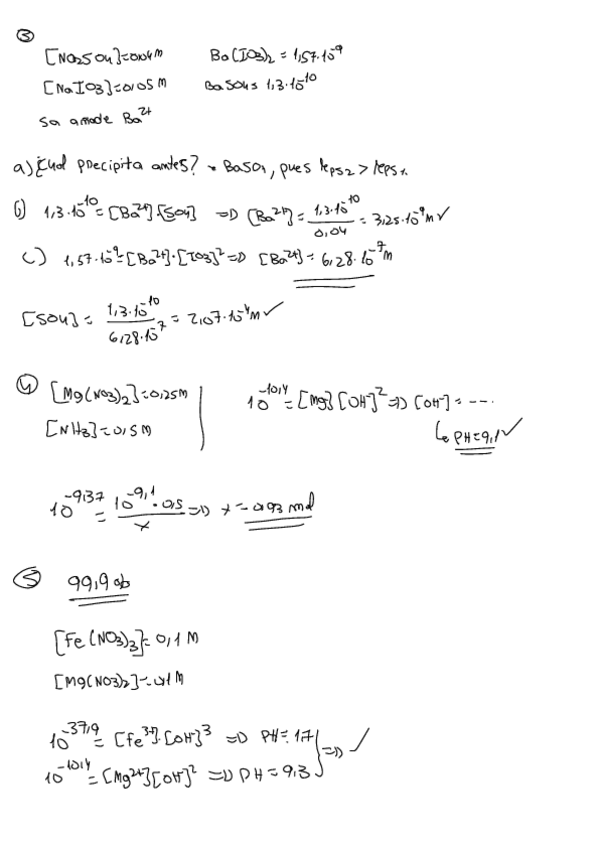 ③
[Na2SO4]=0,04M Ba(IO3)2 = 1,57·10^-9
[NaIO3]=0,05 M BaSO4= 1,3·10^-10
Se añade Ba^2+
a) ¿Cuál precipita antes? • BaSO4, pues kps2 > kps1.
b) 1,3·10^-10 = [Ba^2+]·[SO4] => [Ba^2+] = 1,3·10^-10 / 0,04 = 3,25·10^-9 M ✓
c) 1,57·10^-9 = [Ba^2+]·[IO3]^2 => [Ba^2+] = 6,28·10^-7 M
[SO4] = 1,3·10^-10 / 6,28·10^-7 = 2,07·10^-4 M ✓
④ [Mg(NO3)2]=0,25M 10^-10,4 = [Mg][OH^-]^2 => [OH^-] = ----
[NH3]=0,5 M PH=9,1 ✓
10^-9,37 = 10^-9,1 · 0,5 / x => x = 0,93 mol
⑤ 99,9 %
[Fe(NO3)3]= 0,1 M
[Mg(NO3)2]=0,1 M
10^-37,9 = [Fe^3+]·[OH^-]^3 => PH=1,7
=> ✓
10^-10,4 = [Mg^2+][OH^-]^2 => PH = 9,3